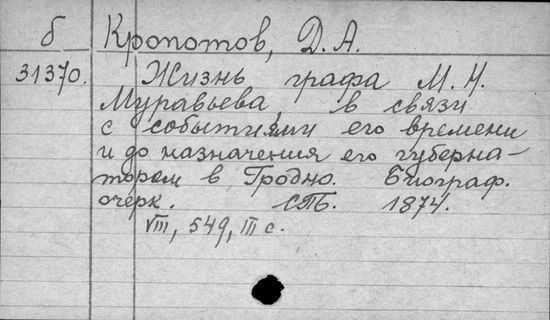 б Кропотов, Д. А.
31370. Жизнь графа М. Н.
Муравьева в связи
с событиями его времени
и до назначения его губерна-
тором в Гродно. Биограф.
очерк. СПб. 1874.
VIII, 549, III с.